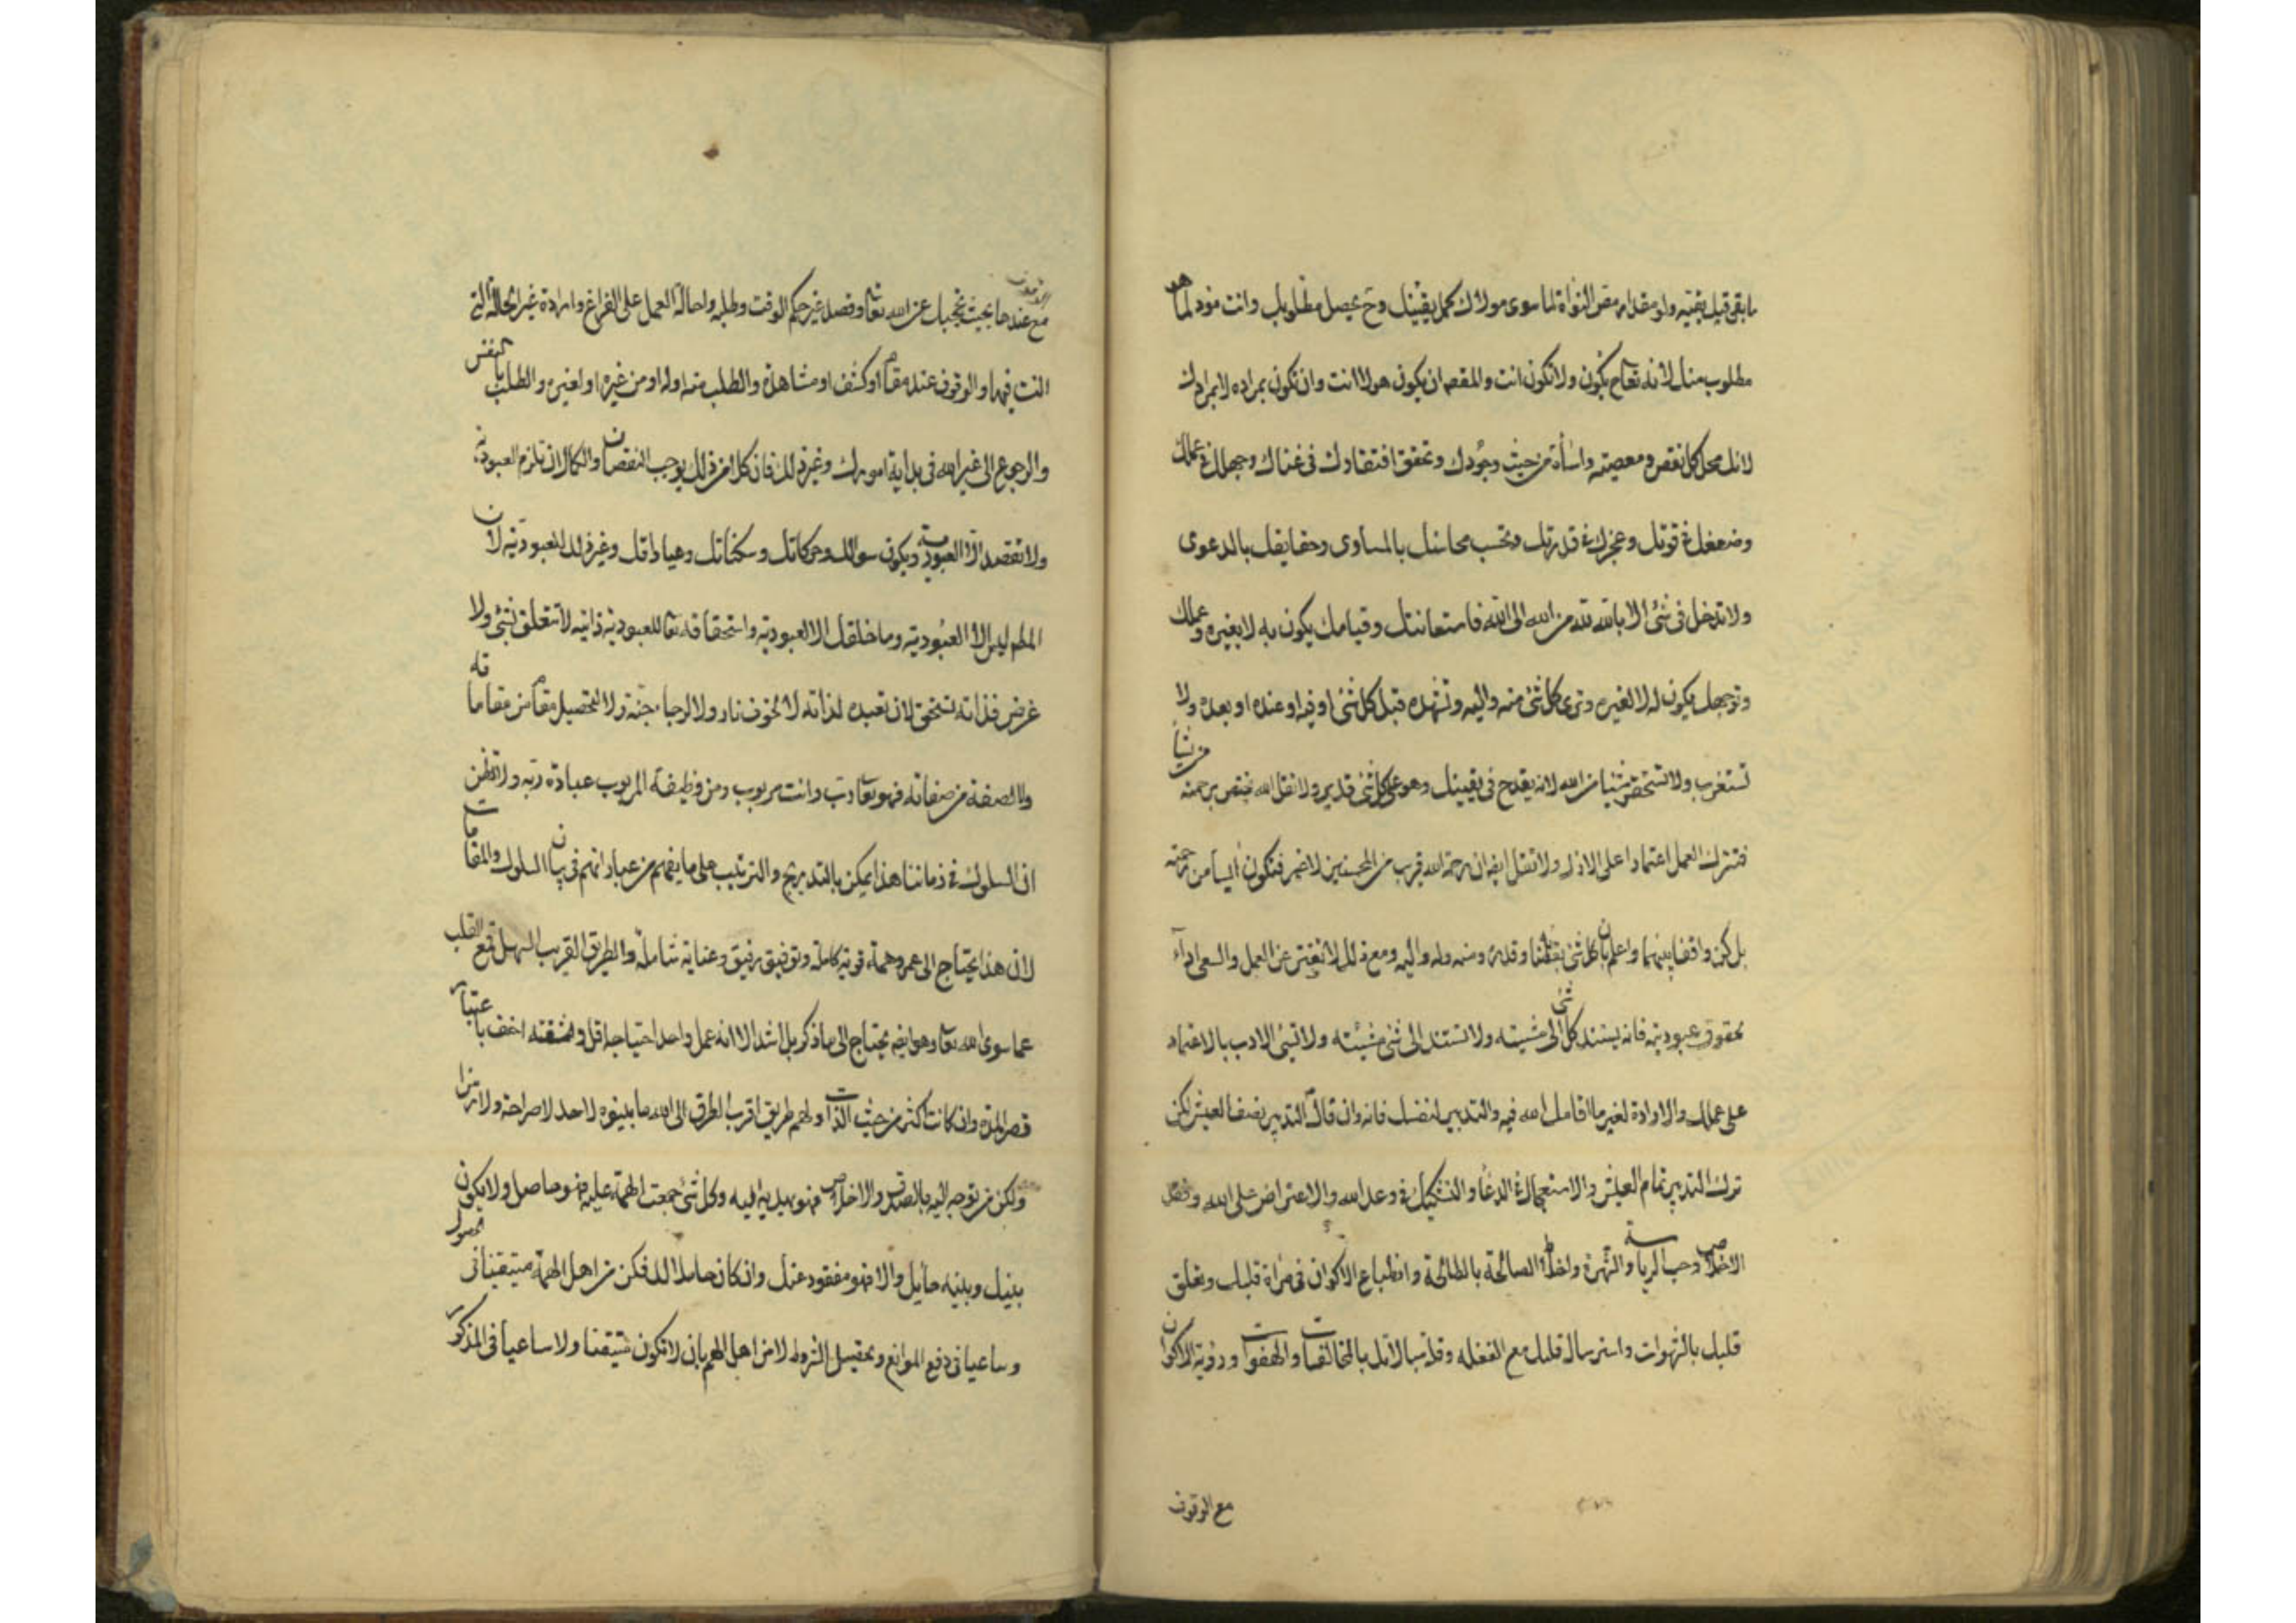 ما بقى فيك بقية ولو مقدار مقص النواة لما سوى مولاك كمل يقينك وح يحصل مطلوبك وانت مفود لما هو
مطلوب منك لانه تعالى يكون ولا تكون انت والمقصد ان يكون هو لا انت وان تكون بمراده لا بمرادك
لانك محل كل نقص ومعصية واساءة من حيث وجودك وتحقق افتقارك فى غناك وجهلك فى علمك
وضعفك فى قوتك وعجزك فى قدرتك وتحسب محاسنك بالمساوى وحقايقك بالدعوى
ولا تدخل فى شئ الا بالله لله من الله الى الله فاستعانتك وقيامك يكون به لا بغيره وعملك
وتوجهك يكون له لا لغيره وترى كل شئ منه واليه وتشهده قبل كل شئ او فيه او عنده او بعده ولا
تستغرب ولا تستحقر شيئا من الله لانه يقدح فى يقينك وهو على كل شئ قدير ولا تقل الله يختص برحمته من يشاء
فتترك العمل اعتمادا على الازل ولا تقل ايضا ان رحمة الله قريب من المحسنين لا غير فتكون آيسا من رحمته
بل كن واقفا بينهما واعلم بان كل شئ بقضائه وقدره ومنه وله واليه ومع ذلك لا تفتر عن العمل والسعى اداء
لحقوق عبوديته فانه يستند كل شئ الى مشيته ولا تستند الى شئ مشيئته ولا تسئ الادب بالاعتماد
على عملك والارادة لغير ما اقامك الله فيه والتدبير لنفسك فانه وان قال التدبير نصف العيش لكن
ترك التدبير تمام العيش والاستعجال فى الدعاء والتشكيك فى وعد الله والاعتراض على الله وقصد
الاخلاص وحب الرياسة والشهرة واخلط الصالحة بالطالحة وانطباع الاكوان فى مرآة قلبك وتعلق
قلبك بالشهوات واسترسال قلبك مع الغفلة وقلة مبالاتك بالمخالفات والهفوات ورؤية الاكوان
مع الوقوف
مع الوقوف عندها بحيث تحجبك عن الله تعالى وفصل غير حكم الوقت وطلبه واحالة العمل على الفراغ وارادة غير الحالة التى
انت فيها والوقوف عند مقام او كشف او مشاهدة والطلب منه اوله او من غيره او لغيره والطلب بالنفس
والرجوع الى غير الله فى بداية امورك وغير ذلك فان كلا من ذلك يوجب النقصان والكمال ان تلزم العبودية
ولا تقصد الا العبودية ويكون سوالك وحركاتك وسكناتك وعباداتك وغير ذلك للعبودية لان
المطم ليس الا العبودية وما خلقك الا للعبودية واستحقاقه تعالى للعبودية ذاتية لا تتعلق بشئ ولا
غرض فذاته تستحق لان تعبده لذاته لا لخوف نار ولا لرجاء جنة ولا لتحصيل مقام من مقاماته
ولا لصفة من صفاته فهو تعالى رب وانت مربوب ومن وظيفة المربوب عبادة ربه ولا تظن
ان السلوك فى زماننا هذا يمكن بالتدريج والترتيب على ما يفهم من عباراتهم فى بيان السلوك والمقامات
لان هذا يحتاج الى عمر وهمة قوية كاملة وتوفيق رفيق وعناية شاملة والطريق القريب السهل قطع القلب
عما سوى الله تعالى وهو ايضا يحتاج الى ما ذكر بل اشد الا انه عمل واحد احتياجه اقل ومشقته اخف باعتبار
قصر المدة وان كانت اكثر من حيث الذات ولهم طريق اقرب الطرق الى الله ما بينوه لاحد لا صراحة ولا رمزا
ولكن من توجه اليه بالصدق والاخلاص فهو يهديه اليه وكل شئ جمعت الهمة عليه فهو حاصل ولا يكون
بينك وبينه حايل والا فهو مفقود عنك وان كان حاصلا لك فكن من اهل الهمة متيقنا فى حصول
وساعيا فى دفع الموانع وتحصيل الشروط لا من اهل الهم بان لا تكون متيقنا ولا ساعيا فى المذكور